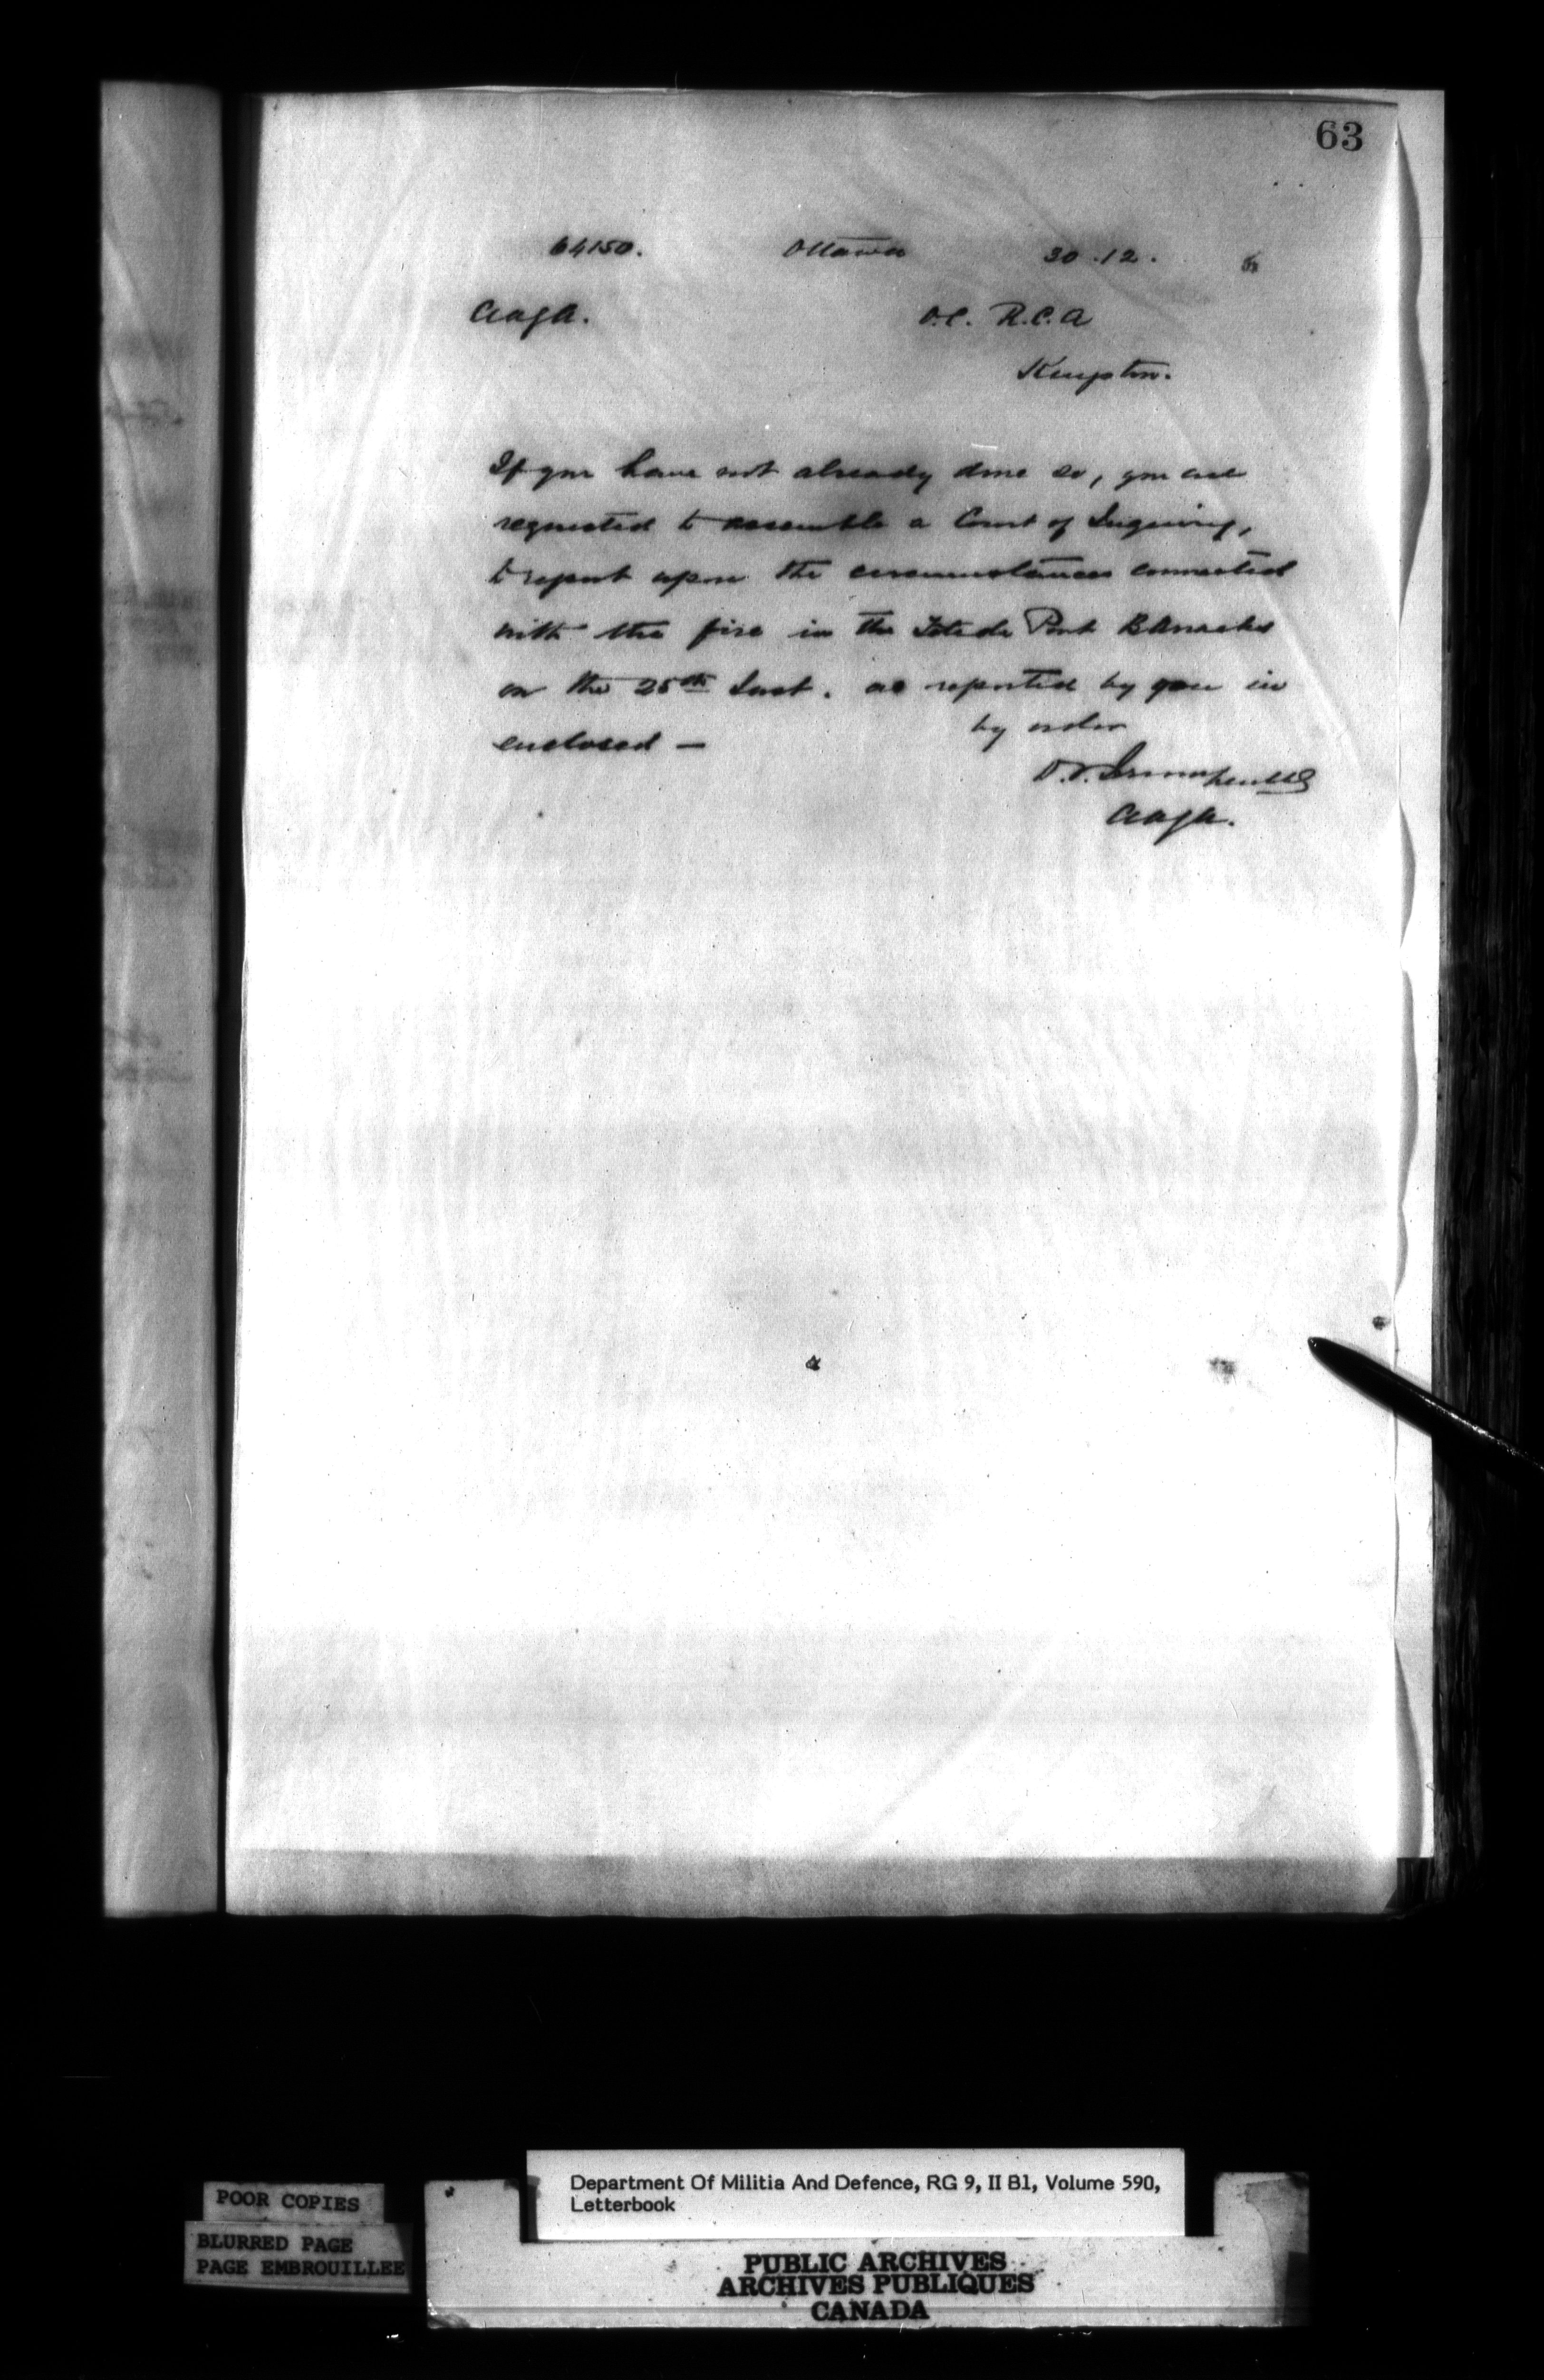 63
64150. Ottawa 30.12.
AAGA. O.C. R.C.A
Kingston.
If you have not already done so, you are
requested to assemble a Court of Inquiry,
to report upon the circumstances connected
with the fire in the Tete de Pont Barracks
on the 25th Inst. as reported by you in
enclosed — by order
AAGA.
Department Of Militia And Defence, RG 9, II B1, Volume 590,
Letterbook
POOR COPIES
BLURRED PAGE
PAGE EMBROUILLEE
PUBLIC ARCHIVES
ARCHIVES PUBLIQUES
CANADA